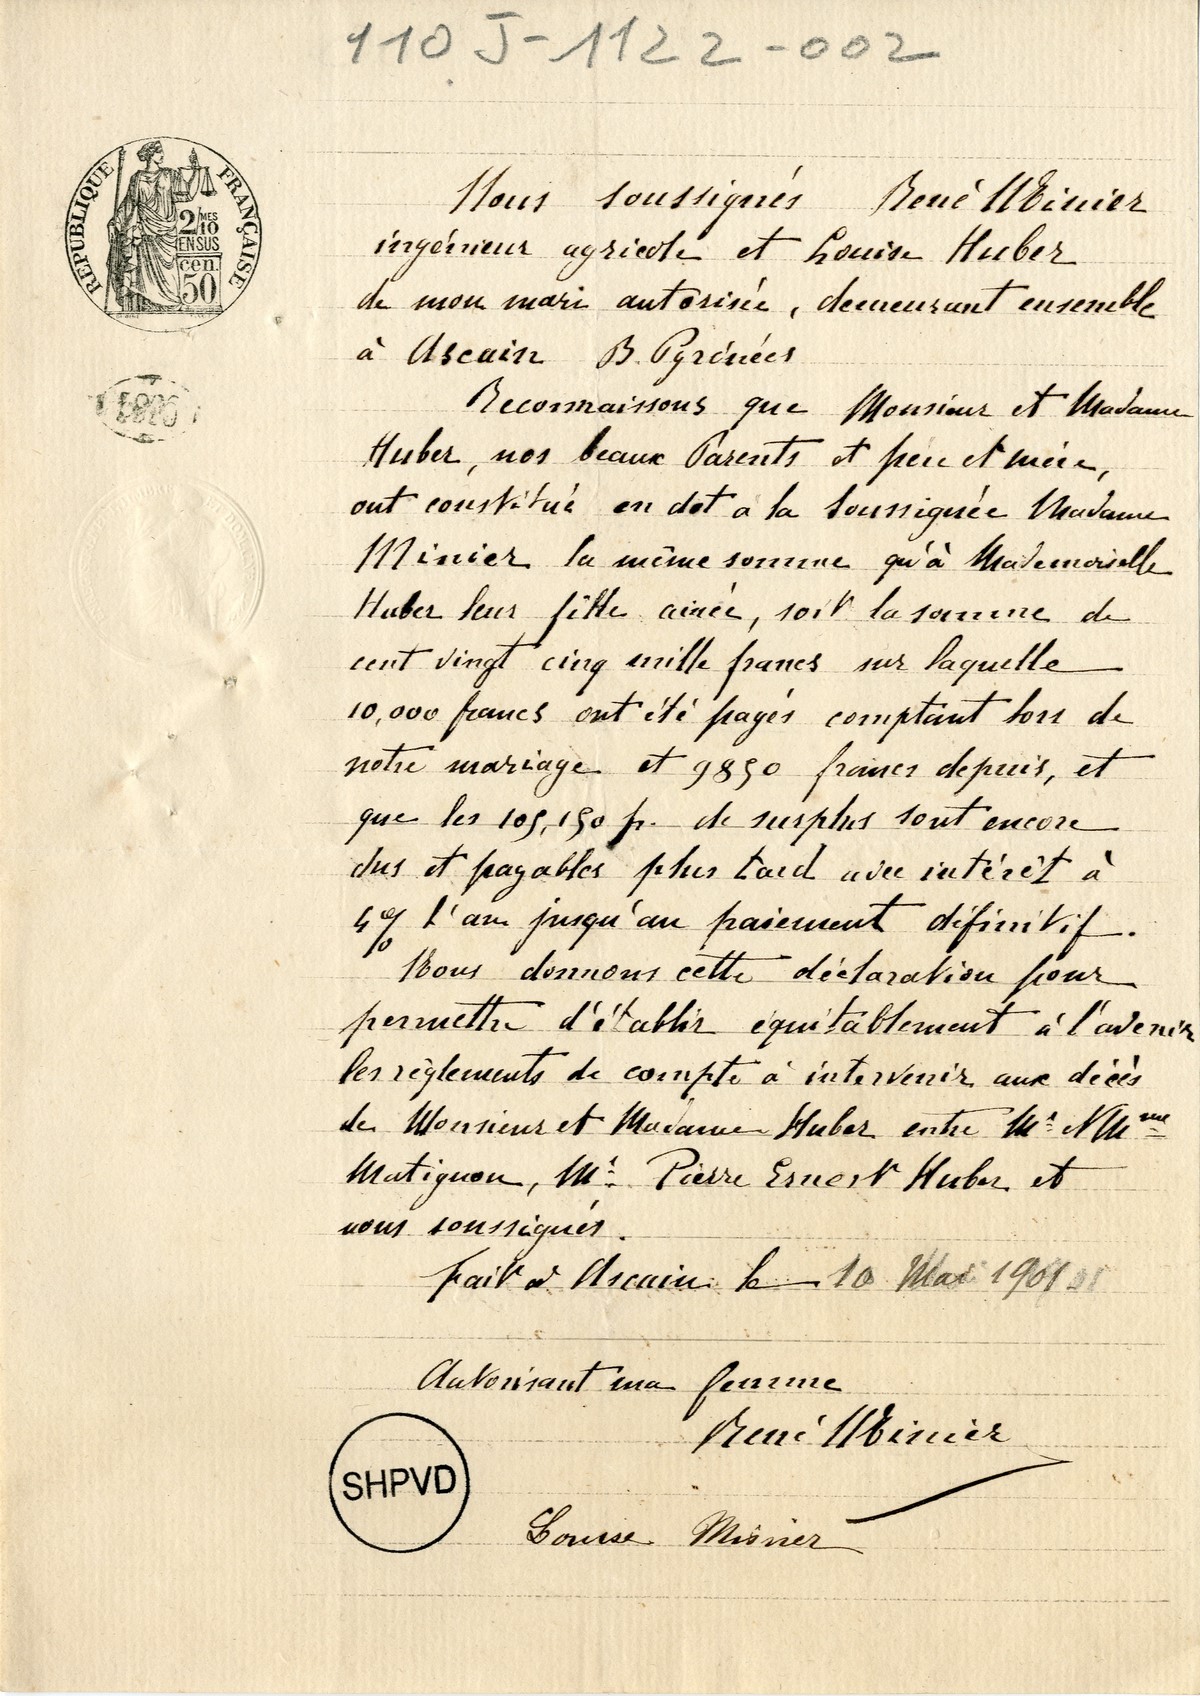 110 J-1122-002
RÉPUBLIQUE FRANÇAISE
2/10MES
EN SUS
cen.
50
Nous soussignés René Minier
ingénieur agricole et Louise Huber
de mon mari autorisée, demeurant ensemble
à Ascain B. Pyrénées
Reconnaissons que Monsieur et Madame
Huber, nos beaux Parents et père et mère,
ont constitué en dot à la soussignée Madame
Minier la même somme qu'à Mademoiselle
Huber leur fille ainée, soit la somme de
cent vingt cinq mille francs sur laquelle
10,000 francs ont été payés comptant lors de
notre mariage et 9850 francs depuis, et
que les 105,150 fr. de surplus sont encore
dus et payables plus tard avec intérêt à
4% l'an jusqu'au paiement définitif.
Nous donnons cette déclaration pour
permettre d'établir équitablement à l'avenir
les règlements de compte à intervenir aux décès
de Monsieur et Madame Huber entre Mr et Mme
Matignon, Mr Pierre Ernest Huber et
nous soussignés.
fait à Ascain le 10 Mai 1901
Autorisant ma femme
René Minier
SHPVD
Louise Minier